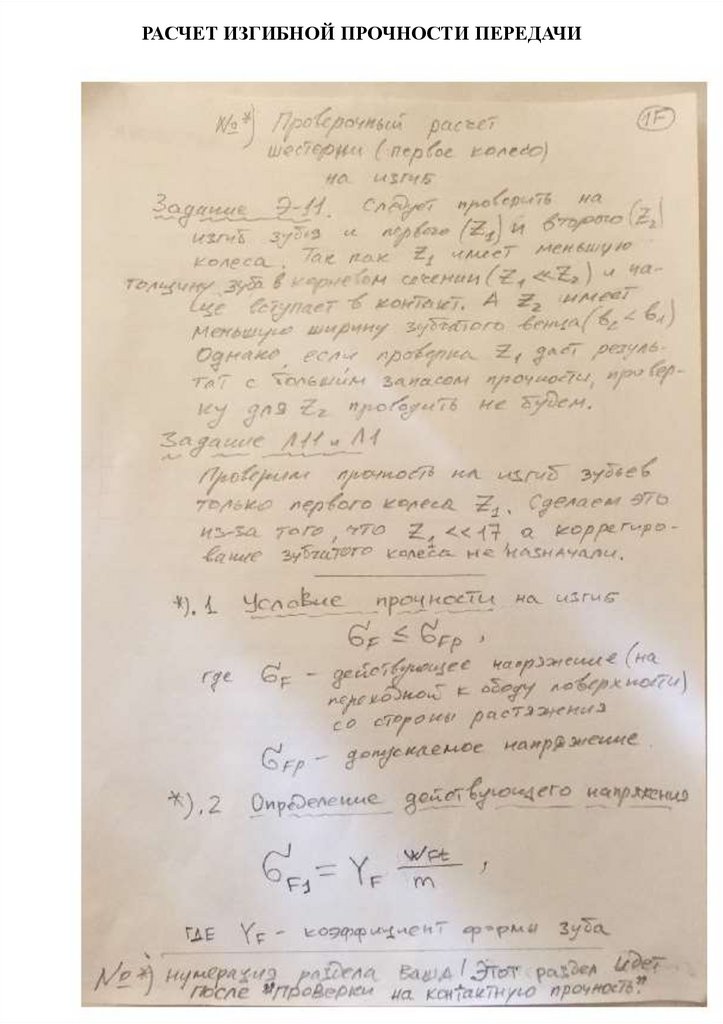 РАСЧЕТ ИЗГИБНОЙ ПРОЧНОСТИ ПЕРЕДАЧИ
1F
№*) Проверочный расчет
шестерни (первое колесо)
на изгиб
Задание Э-11. Следует проверить на
изгиб зубья и первого (Z₁) и второго (Z₂)
колеса. Так как Z₁ имеет меньшую
толщину зуба в корневом сечении (Z₁ << Z₂) и ча-
ще вступает в контакт. А Z₂ имеет
меньшую ширину зубчатого венца (в₂ < в₁)
Однако, если проверка Z₁ даст резуль-
тат с большим запасом прочности, провер-
ку для Z₂ проводить не будем.
Задание Л11 и Л1
Проверим прочность на изгиб зубьев
только первого колеса Z₁. Сделаем это
из-за того, что Z₁ << 17, а коррегиро-
вание зубчатого колеса не назначали.
*).1 Условие прочности на изгиб
σF ≤ σFp ,
где σF – действующее напряжение (на
переходной к ободу поверхности)
со стороны растяжения
σFp – допускаемое напряжение.
*).2 Определение действующего напряжения
σF1 = YF wFt/m ,
ГДЕ YF – коэффициент формы зуба
№*) нумерация раздела ваша! Этот раздел идет
после "проверки на контактную прочность".